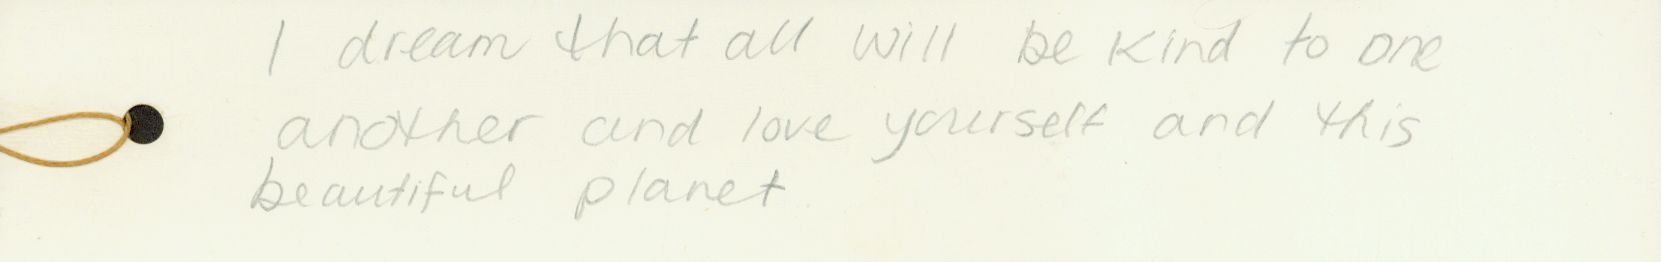 I dream that all will be kind to one
another and love yourself and this
beautiful planet.